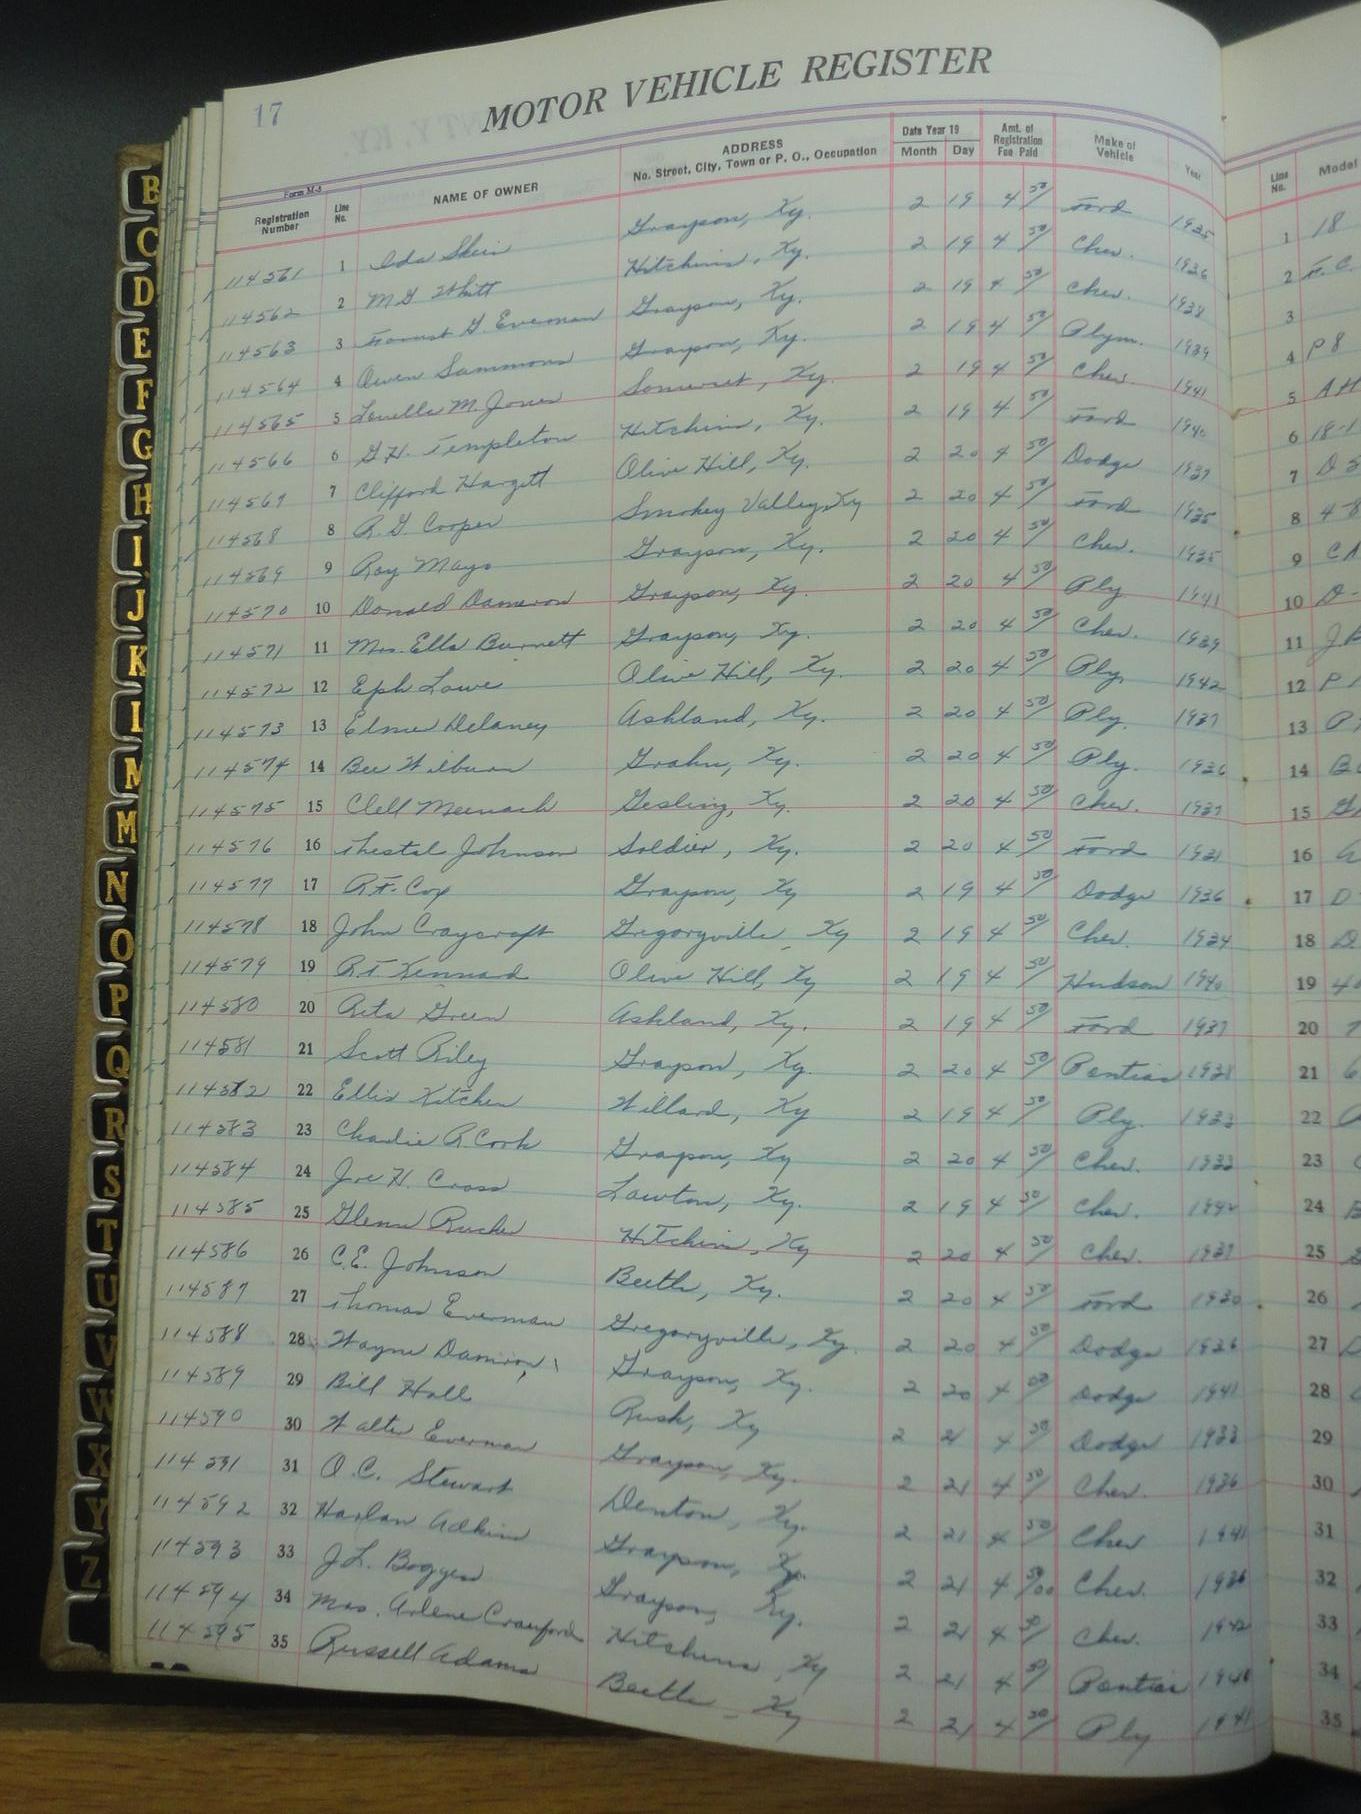 17
MOTOR VEHICLE REGISTER
Form M-5
Registration Number Line No. NAME OF OWNER ADDRESS No. Street, City, Town or P. O., Occupation Date Year 19 Month Day Amt. of Registration Fee Paid Make of Vehicle Year Line No. Model
114561 1 Ida Grayson, Ky. 2 19 4 50/ Ford 1935 1 18
114562 2 M G Whitt Hitchins, Ky. 2 19 4 50/ Chev. 1936 2
114563 3 Forrest G Everman Grayson, Ky. 2 19 4 50/ Chev. 1938 3
114564 4 Owen Sammons Grayson, Ky. 2 19 4 50/ Plym. 1939 4 P8
114565 5 Louella M. Jones Somerset, Ky. 2 19 4 50/ Chev. 1941 5 AH
114566 6 G.H. Templeton Hitchins, Ky. 2 19 4 50/ Ford 1940 6 18-1
114567 7 Clifford Hargett Olive Hill, Ky. 2 20 4 50/ Dodge 1937 7 D5
114568 8 R.G. Cooper Smokey Valley, Ky 2 20 4 50/ Ford 1935 8 48
114569 9 Roy Mayo Grayson, Ky. 2 20 4 50/ Chev. 1935 9
114570 10 Donald Dameron Grayson, Ky. 2 20 4 50/ Ply 1941 10 D-
114571 11 Mrs. Ella Burnett Grayson, Ky. 2 20 4 50/ Chev. 1939 11
114572 12 Eph Lowe Olive Hill, Ky. 2 20 4 50/ Ply. 1942 12
114573 13 Elmer Delaney Ashland, Ky. 2 20 4 50/ Ply. 1937 13
114574 14 Bee Wilburn Grahn, Ky. 2 20 4 50/ Ply. 1936 14
114575 15 Clell Meenach Gesling, Ky. 2 20 4 50/ Chev. 1937 15
114576 16 Thestal Johnson Soldier, Ky. 2 20 4 50/ Ford 1931 16
114577 17 R.F. Cox Grayson, Ky 2 19 4 50/ Dodge 1936 17 D
114578 18 John Craycraft Gregoryville, Ky 2 19 4 50/ Chev. 1934 18 D
114579 19 R.T. Kennard Olive Hill, Ky 2 19 4 50/ Hudson 1940 19
114580 20 Reta Green Ashland, Ky. 2 19 4 50/ Ford 1937 20 7
114581 21 Scott Riley Grayson, Ky. 2 20 4 50/ Pontiac 1938 21 6
114582 22 Ellis Kitchen Willard, Ky 2 19 4 50/ Ply. 1933 22
114583 23 Charlie R. Cook Grayson, Ky 2 20 4 50/ Chev. 1933 23
114584 24 Joe H. Cross Lawton, Ky. 2 19 4 50/ Chev. 24
114585 25 Glenn Rucker Hitchins, Ky 2 20 4 50/ Chev. 1937 25
114586 26 C.E. Johnson Beetle, Ky. 2 20 4 50/ Ford 1930 26
114587 27 Thomas Everman Gregoryville, Ky. 2 20 4 50/ Dodge 1936 27
114588 28 Wayne Damron Grayson, Ky. 2 20 4 Dodge 1941 28
114589 29 Bill Hall Rush, Ky 2 21 4 50/ Dodge 1933 29
114590 30 Walter Everman Grayson, Ky. 2 21 4 50/ Chev. 1936 30
114591 31 O.C. Stewart Denton, Ky. 2 21 4 50/ Chev 1941 31
114592 32 Harlan Adkins Grayson, Ky. 2 21 4 Chev. 1936 32
114593 33 J.L. Boggess Grayson, Ky. 2 21 4 50/ Chev. 1942 33
114594 34 Mrs. Arlene Crawford Hitchens, Ky 2 21 4 50/ Pontiac 1940 34
114595 35 Russell Adams Beetle, Ky 2 21 4 50/ Ply 1941 35
B
C
D
E
F
G
H
I
J
K
L
M
M
N
O
P
Q
R
S
T
U
V
W
X
Y
Z